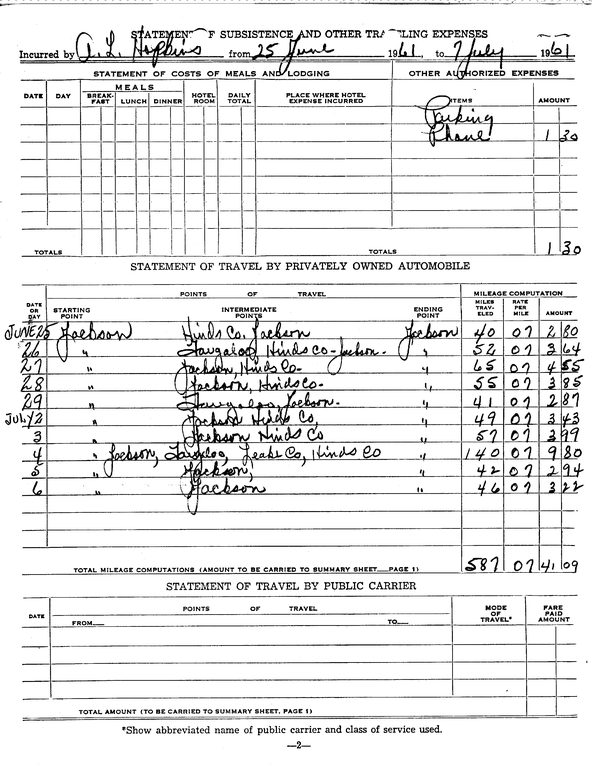 STATEMENT OF SUBSISTENCE AND OTHER TRAVELING EXPENSES
Incurred by A. L. Hopkins from 25 June 1961, to 7 July 1961
STATEMENT OF COSTS OF MEALS AND LODGING OTHER AUTHORIZED EXPENSES
DATE DAY MEALS BREAK-FAST LUNCH DINNER HOTEL ROOM DAILY TOTAL PLACE WHERE HOTEL EXPENSE INCURRED ITEMS AMOUNT
Parking
Phone 1 30
TOTALS TOTALS 1 30
STATEMENT OF TRAVEL BY PRIVATELY OWNED AUTOMOBILE
POINTS OF TRAVEL MILEAGE COMPUTATION
DATE OR DAY STARTING POINT INTERMEDIATE POINTS ENDING POINT MILES TRAV-ELED RATE PER MILE AMOUNT
JUNE 25 Jackson Hinds Co, Jackson Jackson 40 07 2 80
26 " Tougaloo, Hinds Co - Jackson - " 52 07 3 64
27 " Jackson, Hinds Co - " 65 07 4 55
28 " Jackson, Hinds Co - " 55 07 3 85
29 " Tougaloo, Jackson - " 41 07 2 87
JULY 2 " Jackson Hinds Co, " 49 07 3 43
3 " Jackson Hinds Co " 57 07 3 99
4 " Jackson, Tougaloo, Leake Co, Hinds Co " 140 07 9 80
5 " Jackson, " 42 07 2 94
6 " Jackson " 46 07 3 22
TOTAL MILEAGE COMPUTATIONS (AMOUNT TO BE CARRIED TO SUMMARY SHEET—PAGE 1) 587 07 41 09
STATEMENT OF TRAVEL BY PUBLIC CARRIER
DATE POINTS OF TRAVEL MODE OF TRAVEL* FARE PAID AMOUNT
FROM— TO—
TOTAL AMOUNT (TO BE CARRIED TO SUMMARY SHEET, PAGE 1)
*Show abbreviated name of public carrier and class of service used.
—2—